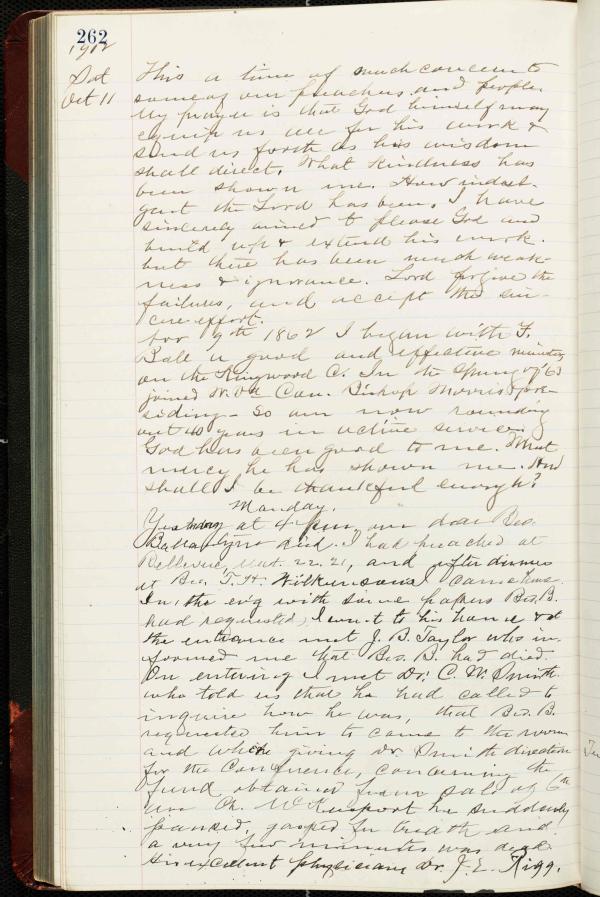 262
1912
Sat
Oct 11
This a time of much concern to
some of our preachers and people.
My prayer is that God himself may
equip us all for his work &
send us forth as his wisdom
shall direct. What kindness has
been shown me. How indul-
gent the Lord has been. I have
sincerely aimed to please God and
build up & extend his work.
but there has been much weak-
ness & ignorance. Lord forgive the
failures, and accept the sin-
cere effort.
9th 1862 I began with F.
Ball a good and effective ministry
on the Kingwood C. In the Spring of '63
joined W. Va Con. Bishop Morris pre-
siding - So am now rounding
out years in active service.
God has been good to me. What
mercy he has shown me. How
shall I be thankful enough?
Monday.
Yesterday at 4 pm, our dear Bro.
died. I had preached at
Bellevue, Mat. 22. 21, and after dinner
at Bro. T. H. Wilkinsons I came home.
In the ev'g with some papers Bro. B.
had requested, I went to his home & at
the entrance met J. B. Taylor who in-
formed me that Bro. B. had died.
On entering I met Dr. C. W. Smith
who told us that he had called to
inquire how he was, that Bro. B.
requested him to come to the room
and while giving Dr. Smith direction
for the Conference, concerning the
fund obtained from sale of 6th
Ch. McKeesport he suddenly
paused, gasped for breath and
a very few minutes was dead
His excellent physician Dr. J. E. Rigg.